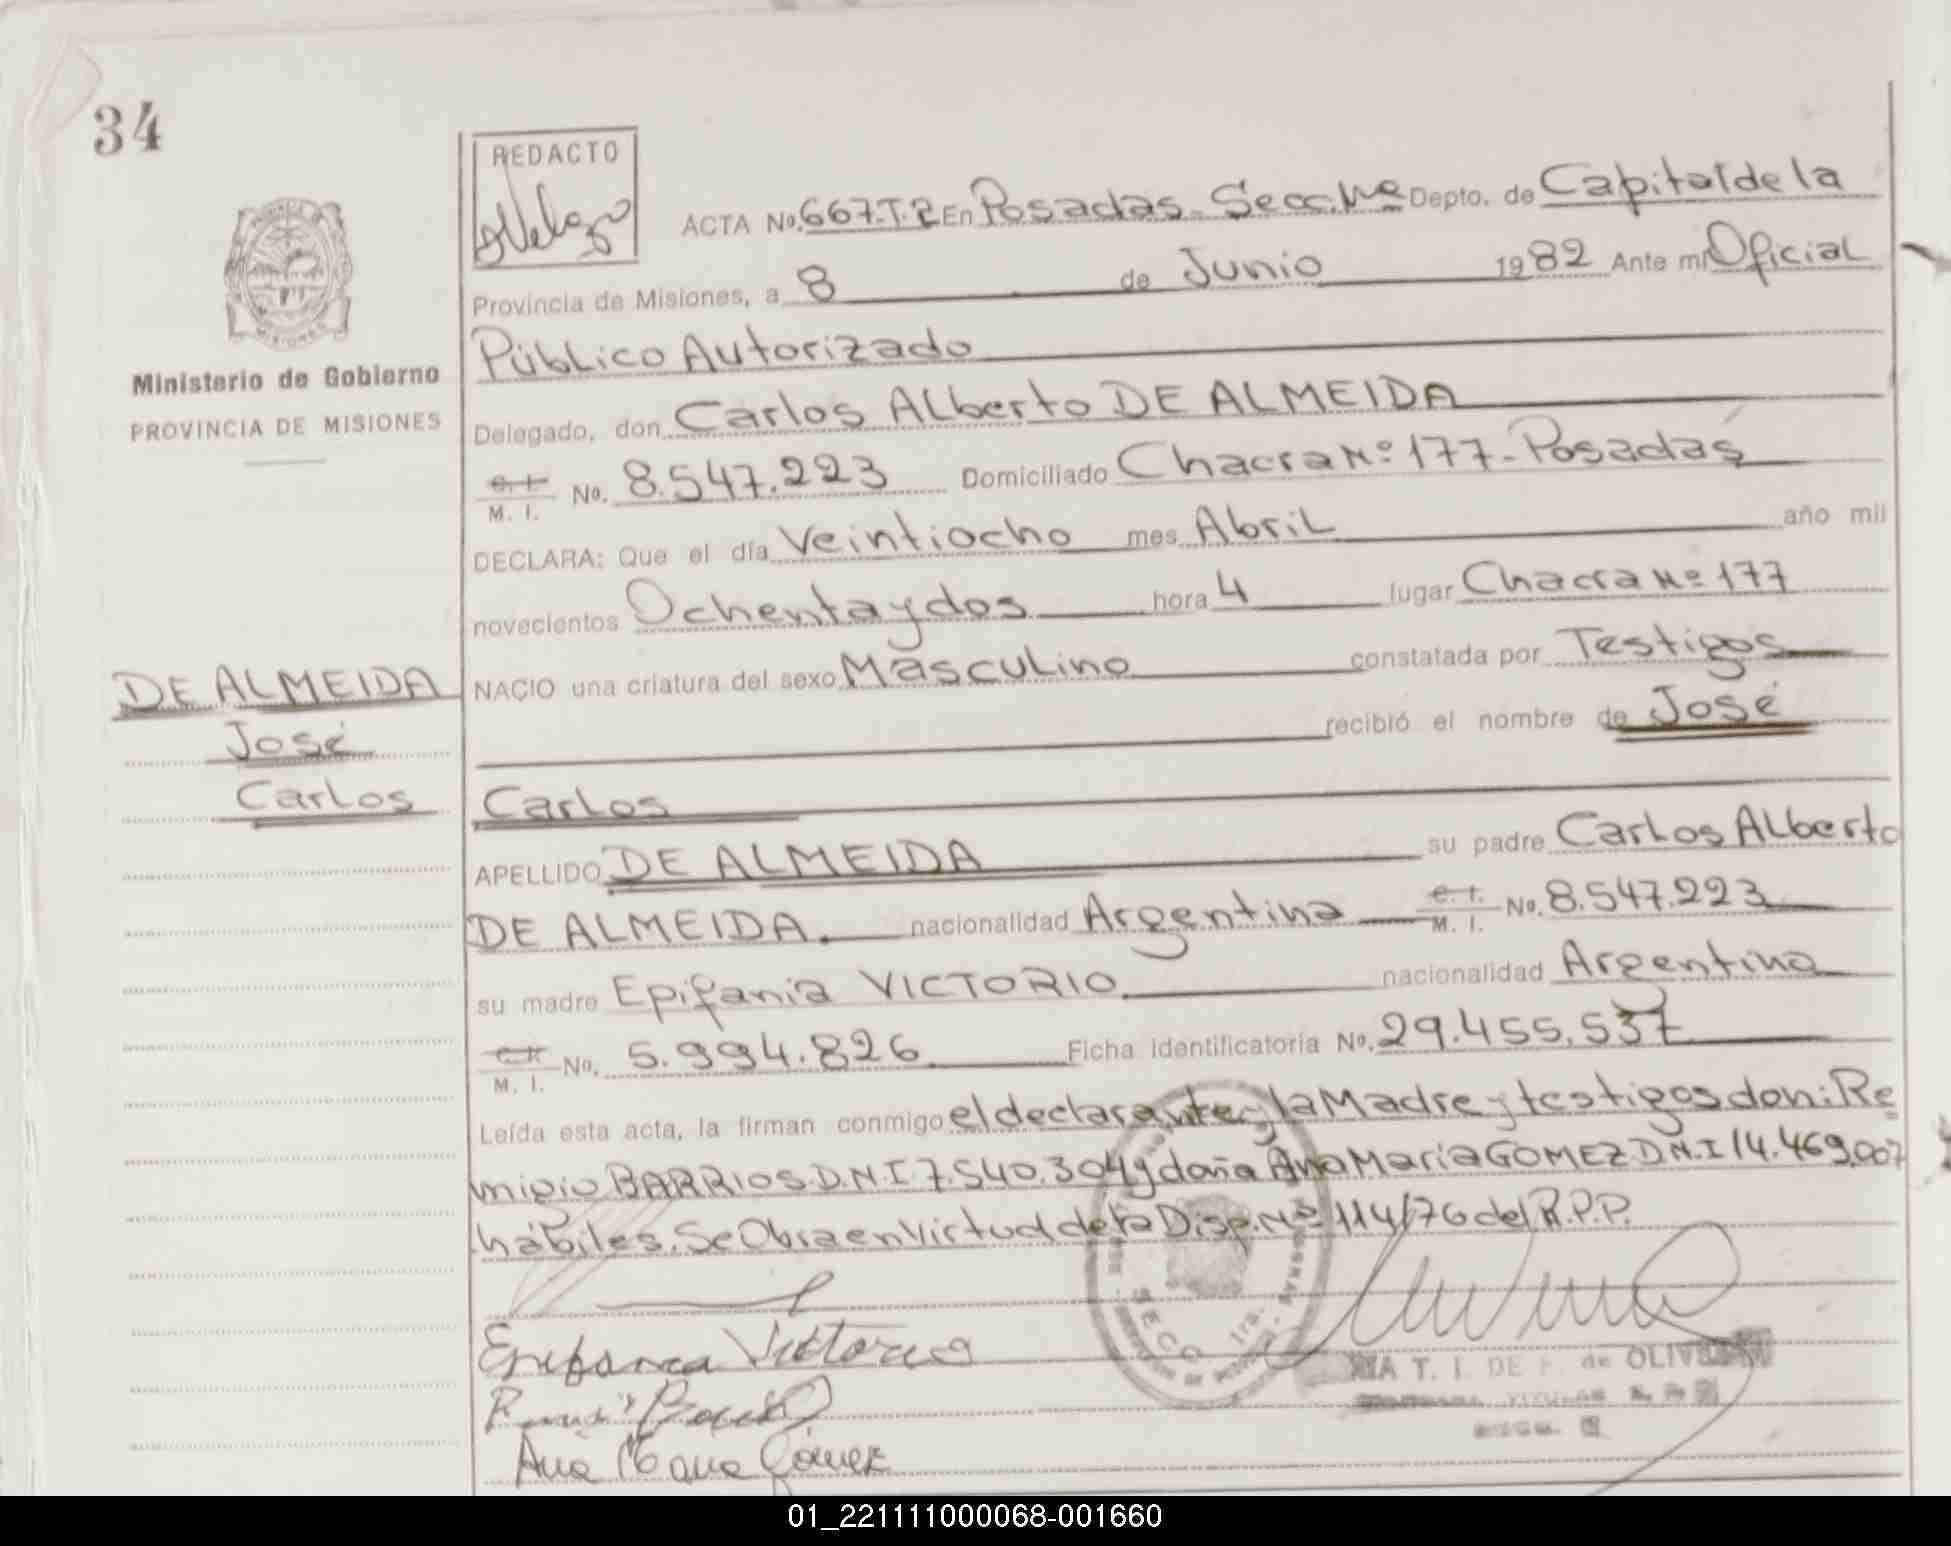 34
REDACTO
ACTA No. 667.T.2 En Posadas. Secc. 1ª Depto. de Capital de la
Provincia de Misiones, a 8 de Junio 1982 Ante mi Oficial
Público Autorizado
Ministerio de Gobierno
PROVINCIA DE MISIONES
Delegado, don Carlos Alberto DE ALMEIDA
C. I. M. I. No. 8.547.223 Domiciliado Chacra Nº 177 - Posadas
DECLARA: Que el día Veintiocho mes Abril año mil
novecientos Ochenta y dos hora 4 lugar Chacra Nº 177
DE ALMEIDA
José
Carlos
NACIO una criatura del sexo Masculino constatada por Testigos
recibió el nombre de José
Carlos
APELLIDO DE ALMEIDA su padre Carlos Alberto
DE ALMEIDA. nacionalidad Argentina C. I. M. I. No. 8.547.223
su madre Epifania VICTORIO nacionalidad Argentina
C. I. M. I. No. 5.994.826 Ficha identificatoria No. 29.455.537
Leída esta acta, la firman conmigo el declarante y la Madre y testigos don: Re
migio BARRIOS. D.N.I. 7.540.304 y doña Ana María GOMEZ D.N.I 14.469.007
hábiles. Se Obra en Virtud de la Disp. Nº 114/76 del R.P.P.
Epifania Victorio
Ana Maria Gómez
SECC. 1ra.
T. I. DE F. de
01_221111000068-001660